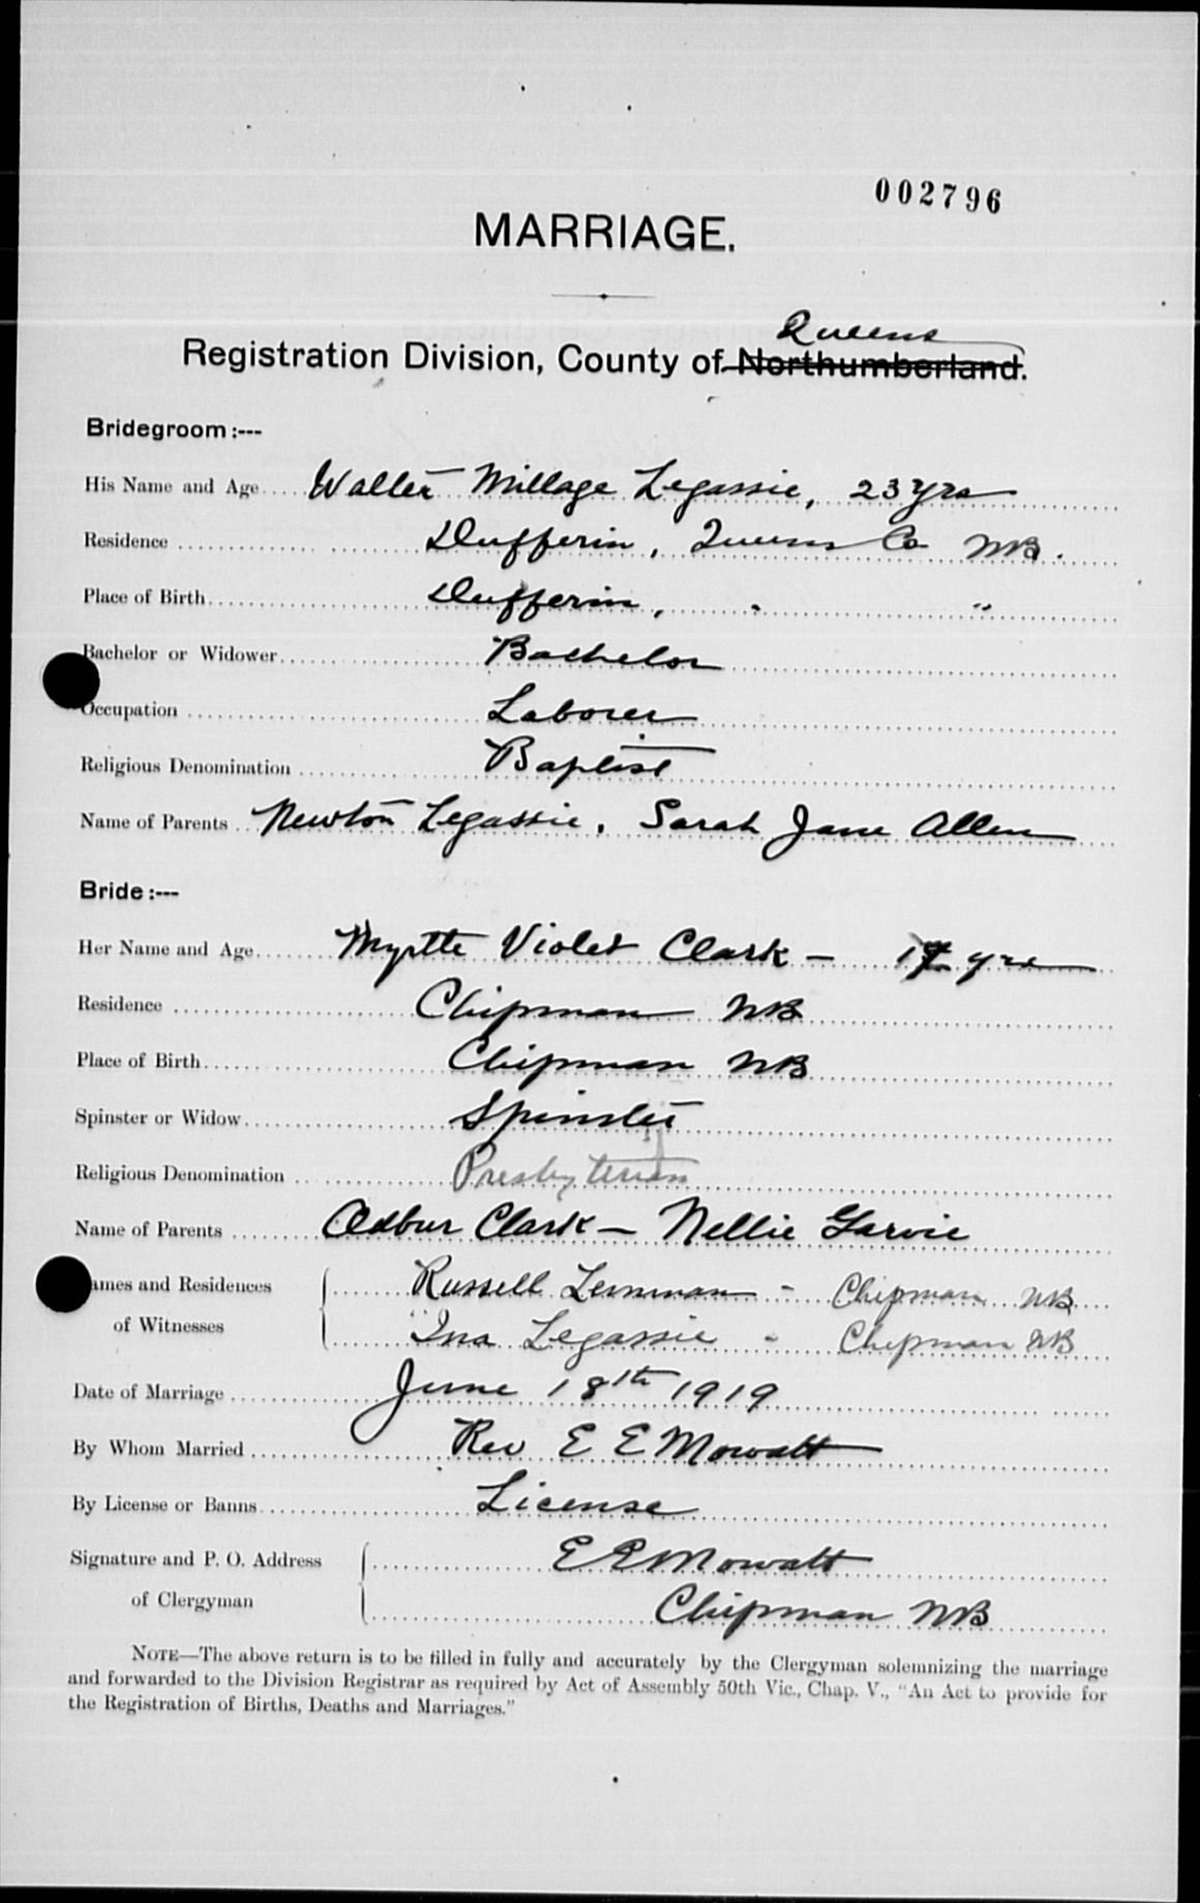 002796
MARRIAGE.
Queens
Registration Division, County of Northumberland.
Bridegroom:---
His Name and Age Walter Millage Legassie, 23 yrs
Residence Dufferin, Queens Co NB.
Place of Birth Dufferin, " "
Bachelor or Widower Bachelor
Occupation Laborer
Religious Denomination Baptist
Name of Parents Newton Legassie, Sarah Jane Allen
Bride:---
Her Name and Age Myrtle Violet Clark - 17 yrs
Residence Chipman NB
Place of Birth Chipman NB
Spinster or Widow Spinster
Religious Denomination Presbyterian
Name of Parents Clark - Nellie Garvie
Names and Residences Russell - Chipman NB
of Witnesses Ina Legassie - Chipman NB
Date of Marriage June 18th 1919
By Whom Married Rev E E Mowatt
By License or Banns License
Signature and P. O. Address E E Mowatt
of Clergyman Chipman NB
NOTE—The above return is to be filled in fully and accurately by the Clergyman solemnizing the marriage
and forwarded to the Division Registrar as required by Act of Assembly 50th Vic., Chap. V., "An Act to provide for
the Registration of Births, Deaths and Marriages."